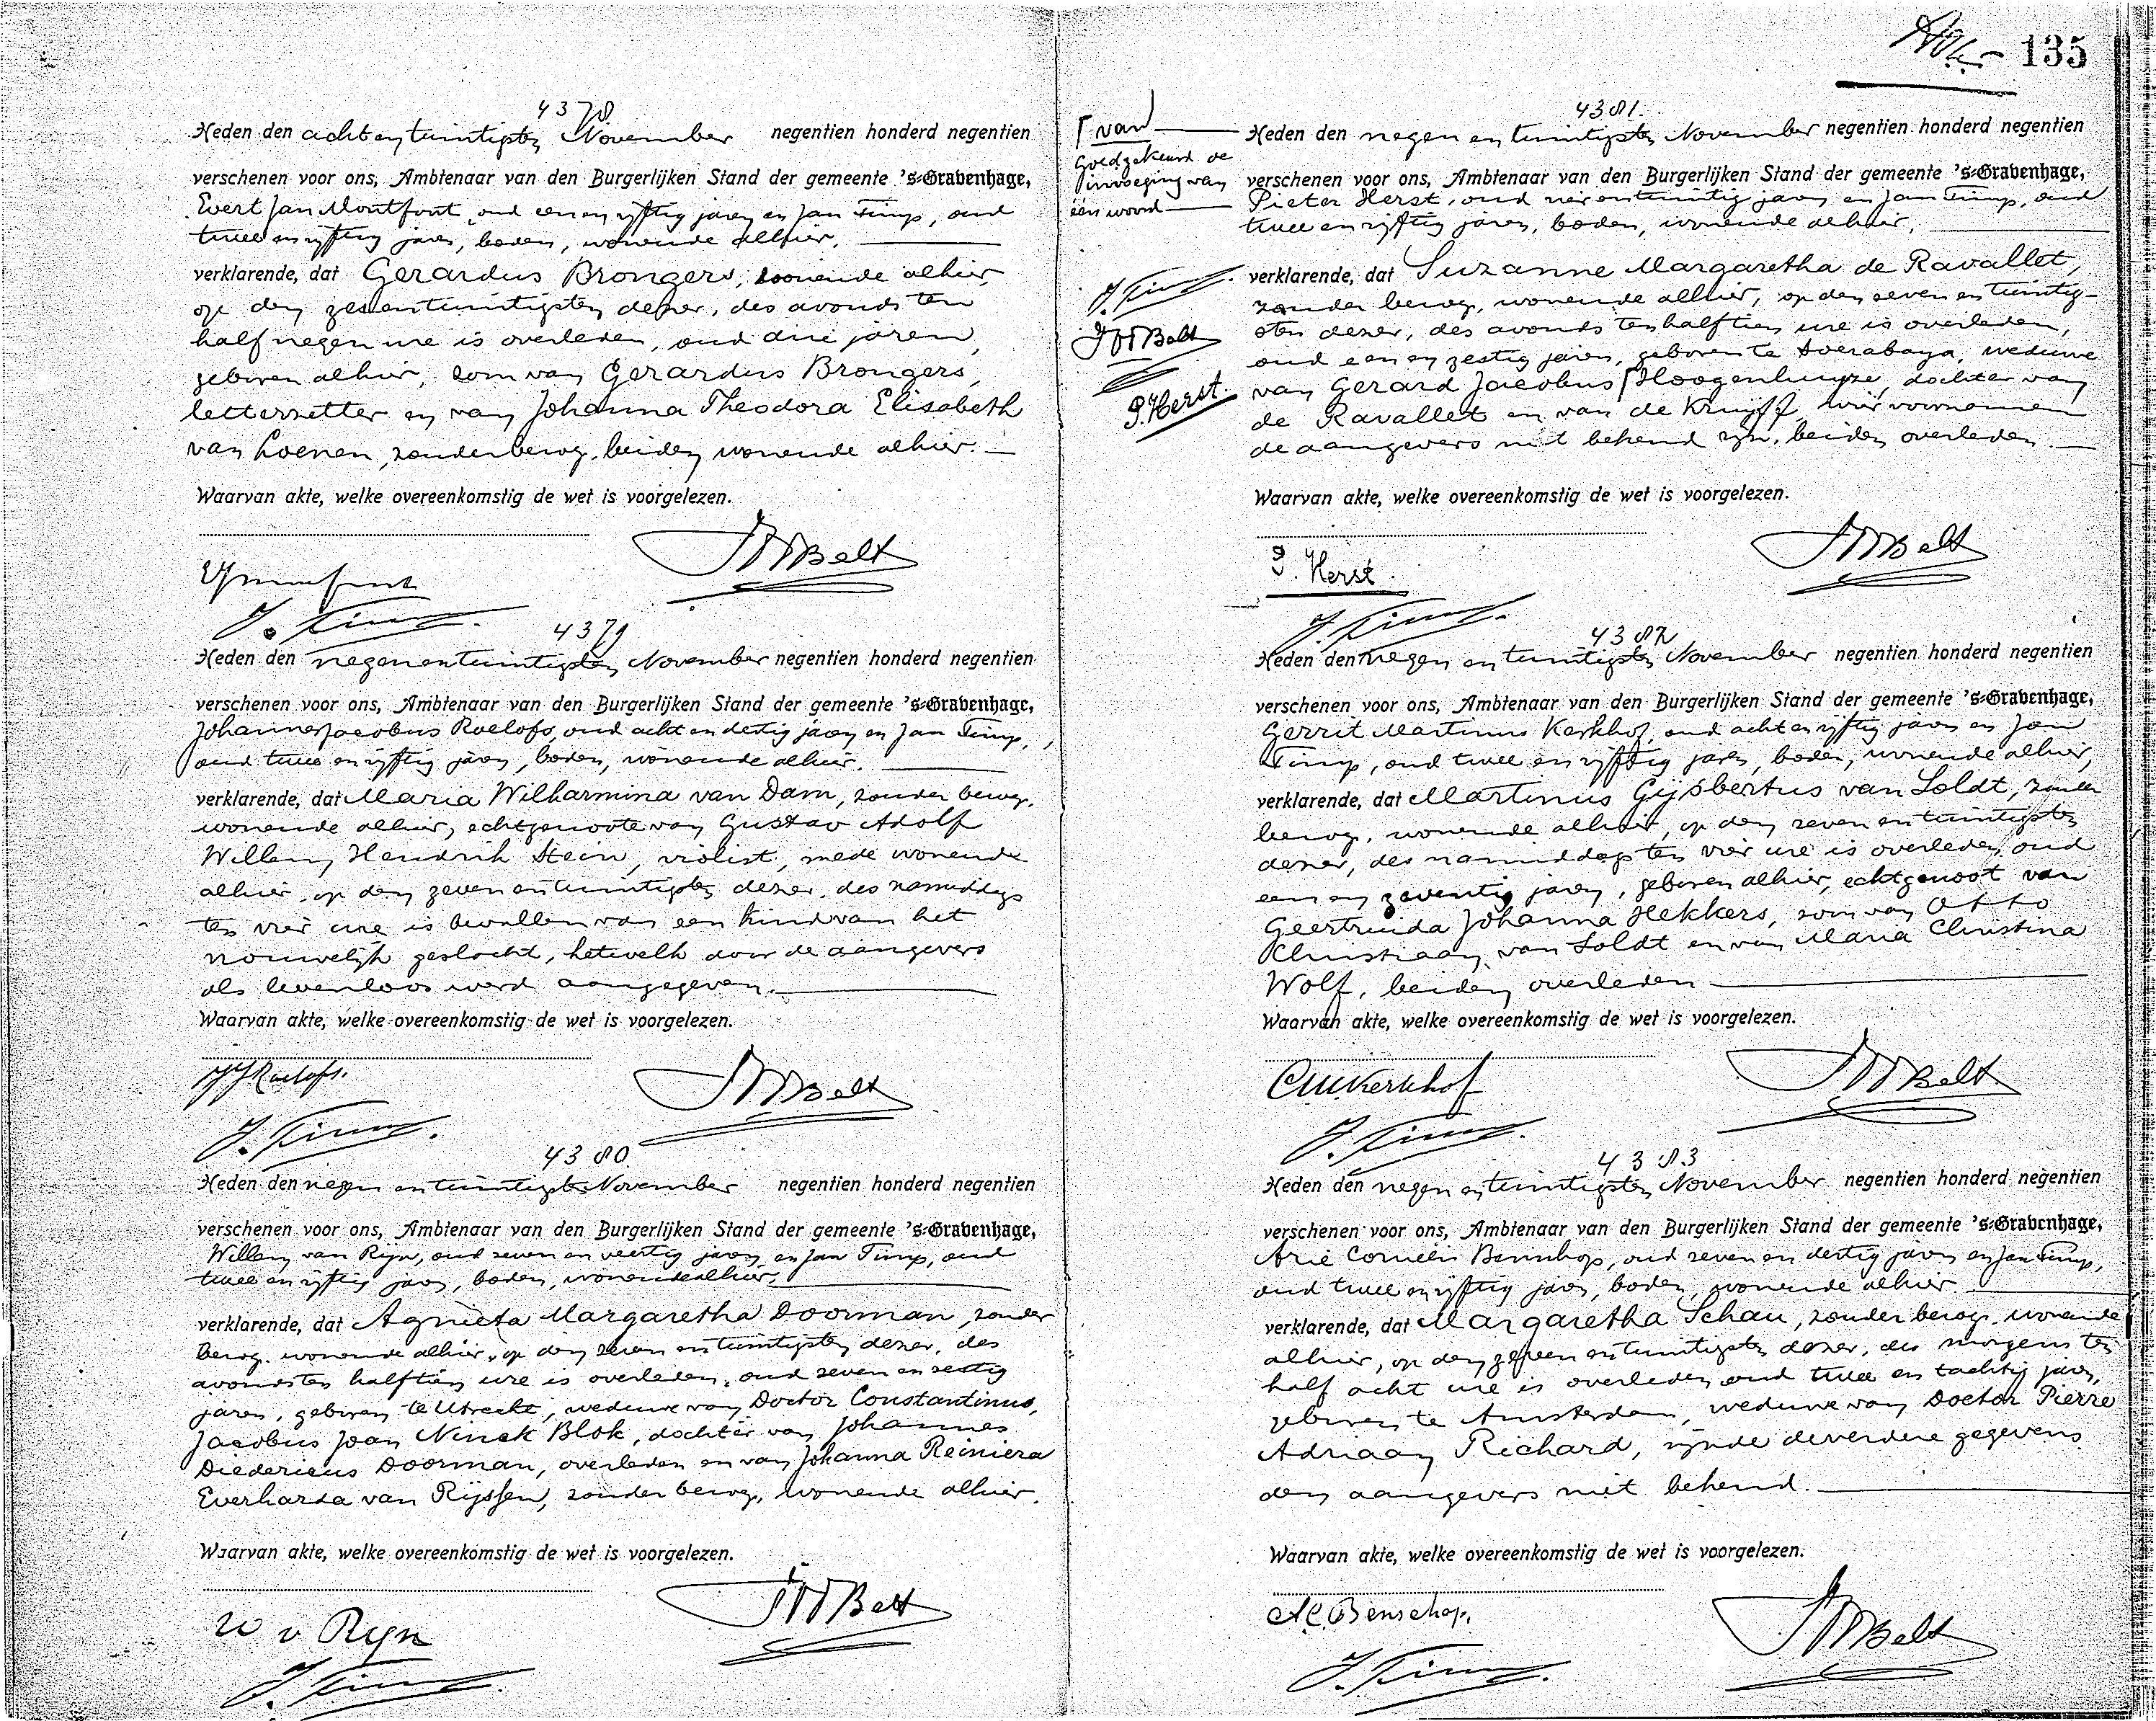 135
4378
Heden den achtentwintigsten November negentien honderd negentien
verschenen voor ons, Ambtenaar van den Burgerlijken Stand der gemeente 's-Gravenhage,
Evert Jan Montfoort, oud een en vijftig jaren en Jan Timp, oud
twee en vijftig jaren, boden, wonende alhier,
verklarende, dat Gerardus Brongers, wonende alhier,
op den zesentwintigsten dezer, des avonds ten
half negen ure is overleden, oud drie jaren,
geboren alhier, zoon van Gerardus Brongers,
letterzetter en van Johanna Theodora Elisabeth
van Loenen, zonder beroep, beiden wonende alhier.
Waarvan akte, welke overeenkomstig de wet is voorgelezen.
Belt
J. Timp
4379
Heden den negenentwintigsten November negentien honderd negentien
verschenen voor ons, Ambtenaar van den Burgerlijken Stand der gemeente 's-Gravenhage,
Johannes Jacobus Roelofs, oud acht en dertig jaren en Jan Timp,
oud twee en vijftig jaren, boden, wonende alhier,
verklarende, dat Maria Wilharmina van Dam, zonder beroep,
wonende alhier, echtgenoote van Gustav Adolf
Willem Hendrik Stein, violist, mede wonende
alhier, op den zeven entwintigsten dezer, des namiddags
ten vier ure is bevallen van een kind van het
vrouwelijk geslacht, hetwelk door de aangevers
als levenloos werd aangegeven.
Waarvan akte, welke overeenkomstig de wet is voorgelezen.
JJ Roelofs.
Belt
J. Timp
4380
Heden den negen en twintigsten November negentien honderd negentien
verschenen voor ons, Ambtenaar van den Burgerlijken Stand der gemeente 's-Gravenhage,
Willem van Rijn, oud zeven en veertig jaren en Jan Timp, oud
twee en vijftig jaren, boden, wonende alhier,
verklarende, dat Agnieta Margaretha Doorman, zonder
beroep, wonende alhier, op den zeven en twintigsten dezer, des
avonds ten half tien ure is overleden, oud zeven en zestig
jaren, geboren te Utrecht, weduwe van Doctor Constantinus,
Jacobus Joan Ninck Blok, dochter van Johannes
Diedericus Doorman, overleden en van Johanna Reiniera
Everharda van Rijssen, zonder beroep, wonende alhier.
Waarvan akte, welke overeenkomstig de wet is voorgelezen.
W v Ryn
Belt
J. Timp
van
Goedgekeurd de
invoeging van
één woord
J. Timp
Belt
P. Herst.
4381.
Heden den negen en twintigsten November negentien honderd negentien
verschenen voor ons, Ambtenaar van den Burgerlijken Stand der gemeente 's-Gravenhage,
Pieter Herst, oud vier en twintig jaren en Jan Timp, oud
twee en vijftig jaren, boden, wonende alhier,
verklarende, dat Suzanne Margaretha de Ravallet,
zonder beroep, wonende alhier, op den zeven en twintig-
sten dezer, des avonds ten half tien ure is overleden,
oud een en zestig jaren, geboren te Soerabaya, weduwe
van Gerard Jacobus Hoogenhuyze, dochter van
de Ravallet en van de Kruijff, wier voornamen
de aangevers niet bekend zijn, beiden overleden.
Waarvan akte, welke overeenkomstig de wet is voorgelezen.
P. Herst
Belt
J. Timp
4382
Heden den negen en twintigsten November negentien honderd negentien
verschenen voor ons, Ambtenaar van den Burgerlijken Stand der gemeente 's-Gravenhage,
Gerrit Martinus Kerkhof, oud acht en vijftig jaren en Jan
Timp, oud twee en vijftig jaren, boden, wonende alhier,
verklarende, dat Martinus Gijsbertus van Soldt, zonder
beroep, wonende alhier, op den zeven en twintigsten
dezer, des namiddags ten vier ure is overleden, oud
een en zeventig jaren, geboren alhier, echtgenoot van
Geertruida Johanna Hekkers, zoon van Otto
Christiaan van Soldt en van Maria Christina
Wolf, beiden overleden
Waarvan akte, welke overeenkomstig de wet is voorgelezen.
GM Kerkhof
Belt
J. Timp
4383
Heden den negen en twintigsten November negentien honderd negentien
verschenen voor ons, Ambtenaar van den Burgerlijken Stand der gemeente 's-Gravenhage,
Arie Cornelis Benschop, oud zeven en dertig jaren en Jan Timp,
oud twee en vijftig jaren, boden, wonende alhier
verklarende, dat Margaretha Schau, zonder beroep, wonende
alhier, op den zeven en twintigsten dezer, des morgens ten
half acht ure is overleden, oud twee en tachtig jaren,
geboren te Amsterdam, weduwe van Doctor Pierre
Adriaan Richard, zijnde de verdere gegevens
den aangevers niet bekend.
Waarvan akte, welke overeenkomstig de wet is voorgelezen.
A.C. Benschop.
Belt
J. Timp